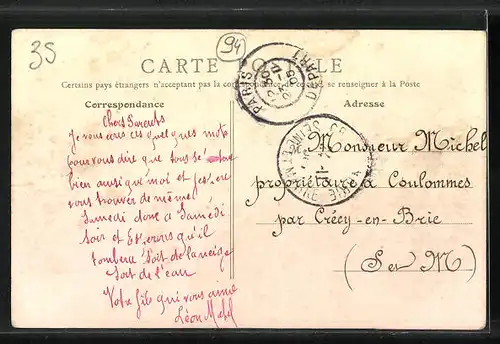 35
94
CARTE POSTALE
Certains pays étrangers n'acceptant pas la correspondance au recto, se renseigner à la Poste
Correspondance
Adresse
PARIS DEPART
Chers Parents
Je vous écris ces quelques mots
pour vous dire que tous se
bien ainsi que moi et j'espère
vous trouver de même.
Samedi donc à Samedi
Soir et Espérons qu'il
tombera soit de la neige
soit de l'eau
Votre fils qui vous aime
Léon Michel
Monsieur Michel
propriétaire à Coulommes
par Crécy-en-Brie
(S et M)